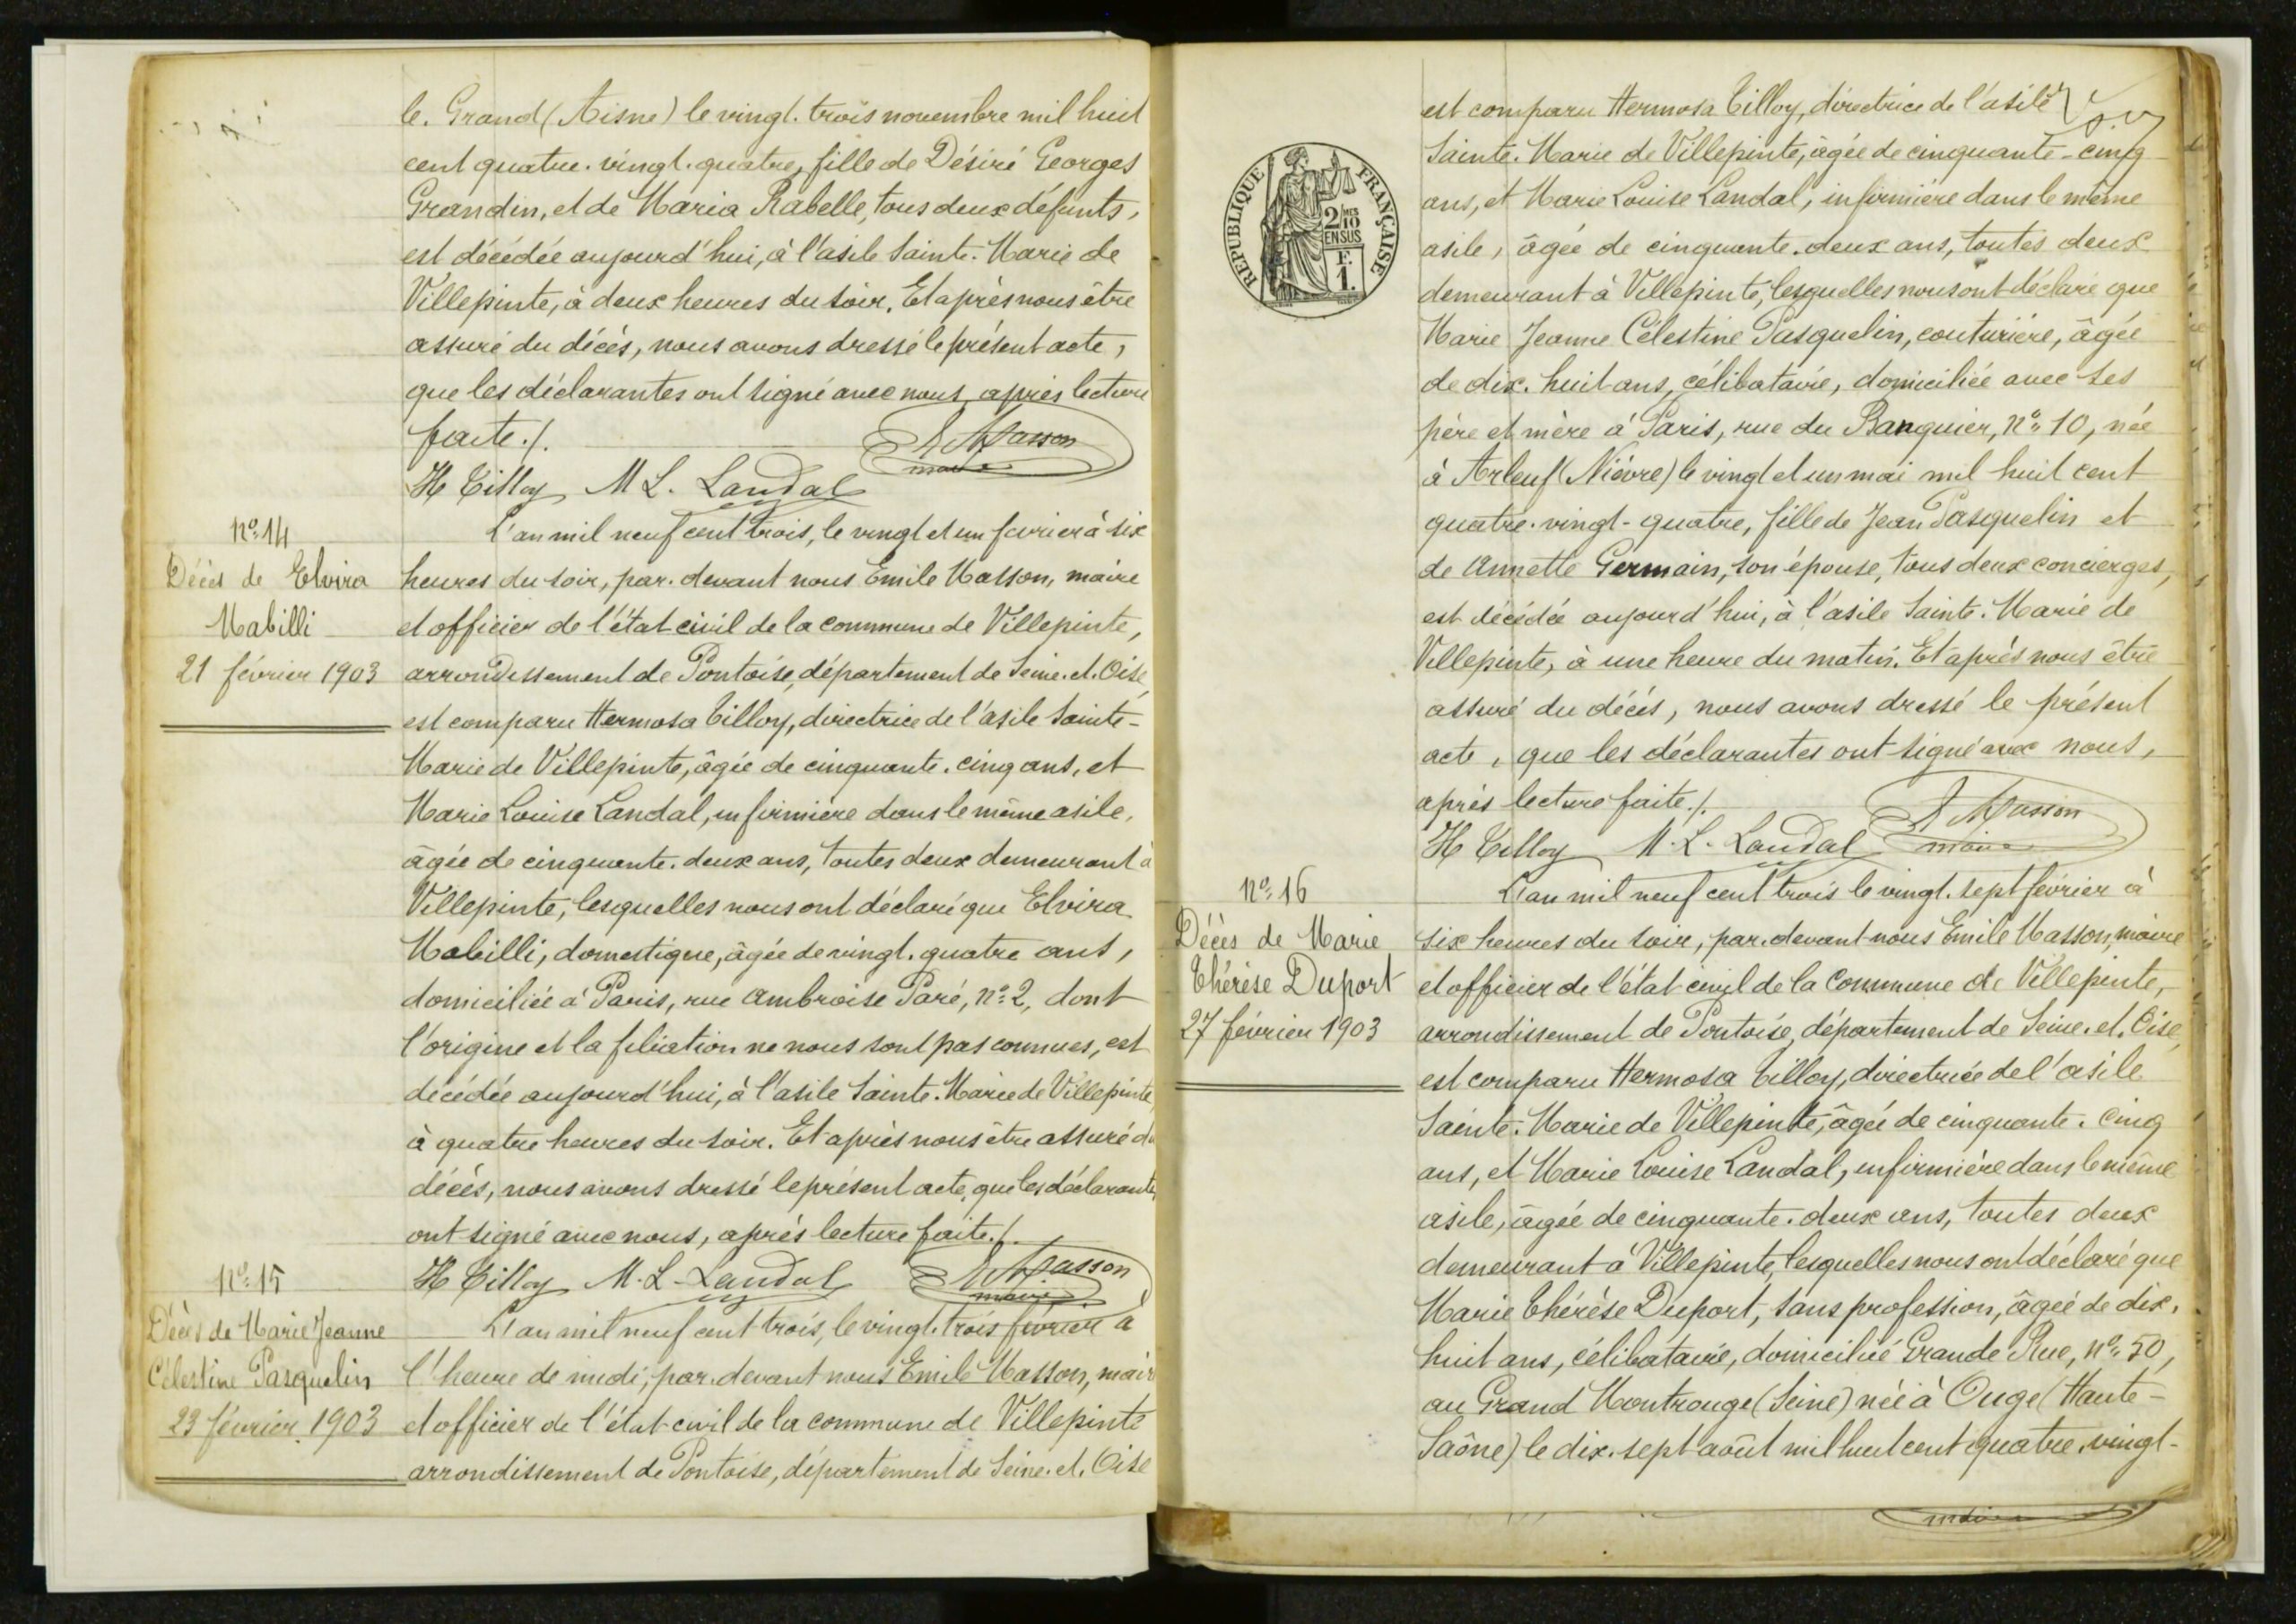 le. Grand (Aisne) le vingt. trois novembre mil huit
cent quatre. vingt. quatre, fille de Désiré Georges
Grandin, et de Maria Rabelle, tous deux défunts,
est décédée aujourd'hui, à l'asile Sainte. Marie de
Villepinte, à deux heures du soir. Et après nous être
assuré du décès, nous avons dressé le présent acte,
que les déclarantes ont signé avec nous, après lecture
faite./.
E Masson
maire
H Tilloy M L. Landal
No 14
Décès de Elvira
Mabilli
21 février 1903
L'an mil neuf cent trois, le vingt et un février à six
heures du soir, par. devant nous Emile Masson, maire
et officier de l'état civil de la commune de Villepinte,
arrondissement de Pontoise, département de Seine. et. Oise,
est comparu Hermosa Tilloy, directrice de l'asile Sainte-
Marie de Villepinte, âgée de cinquante. cinq ans, et
Marie Louise Landal, infirmière dans le même asile,
âgée de cinquante. deux ans, toutes deux demeurant à
Villepinte, lesquelles nous ont déclaré que Elvira
Mabilli, domestique, âgée de vingt. quatre ans,
domiciliée à Paris, rue Ambroise Paré, no 2, dont
l'origine et la filiation ne nous sont pas connues, est
décédée aujourd'hui, à l'asile Sainte. Marie de Villepinte,
à quatre heures du soir. Et après nous être assuré du
décès, nous avons dressé le présent acte, que les déclarantes
ont signé avec nous, après lecture faite./.
H Tilloy M. L. Landal E Masson
maire
No 15
Décès de Marie Jeanne
Célestine Pasquelin
23 février 1903
L'an mil neuf cent trois, le vingt. trois février à
l'heure de midi, par. devant nous Emile Masson, maire
et officier de l'état civil de la commune de Villepinte
arrondissement de Pontoise, département de Seine. et. Oise
REPUBLIQUE FRANÇAISE
2 MES
10
EN SUS
F.
1.
est comparu Hermosa Tilloy, directrice de l'asile
Sainte. Marie de Villepinte, âgée de cinquante-cinq
ans, et Marie Louise Landal, infirmière dans le même
asile, âgée de cinquante. deux ans, toutes deux
demeurant à Villepinte, lesquelles nous ont déclaré que
Marie Jeanne Célestine Pasquelin, couturière, âgée
de dix. huit ans, célibataire, domiciliée avec ses
père et mère à Paris, rue du Banquier, No 10, née
à Arleuf (Nièvre) le vingt et un mai mil huit cent
quatre. vingt-quatre, fille de Jean Pasquelin et
de Annette Germain, son épouse, tous deux concierges,
est décédée aujourd'hui, à l'asile Sainte. Marie de
Villepinte, à une heure du matin. Et après nous être
assuré du décès, nous avons dressé le présent
acte, que les déclarantes ont signé avec nous,
après lecture faite./.
E Masson
H Tilloy M. L. Landal maire
No 16
Décès de Marie
Thérèse Duport
27 février 1903
L'an mil neuf cent trois le vingt. sept février à
six heures du soir, par. devant nous Emile Masson, maire
et officier de l'état civil de la Commune de Villepinte,
arrondissement de Pontoise, département de Seine. et. Oise,
est comparu Hermosa Tilloy, directrice de l'asile
Sainte. Marie de Villepinte, âgée de cinquante. cinq
ans, et Marie Louise Landal, infirmière dans le même
asile, âgée de cinquante. deux ans, toutes deux
demeurant à Villepinte, lesquelles nous ont déclaré que
Marie Thérèse Duport, sans profession, âgée de dix.
huit ans, célibataire, domiciliée Grande Rue, No 50,
au Grand Montrouge (Seine) née à Ouge (Haute-
Saône) le dix. sept août mil huit cent quatre. vingt-
maire